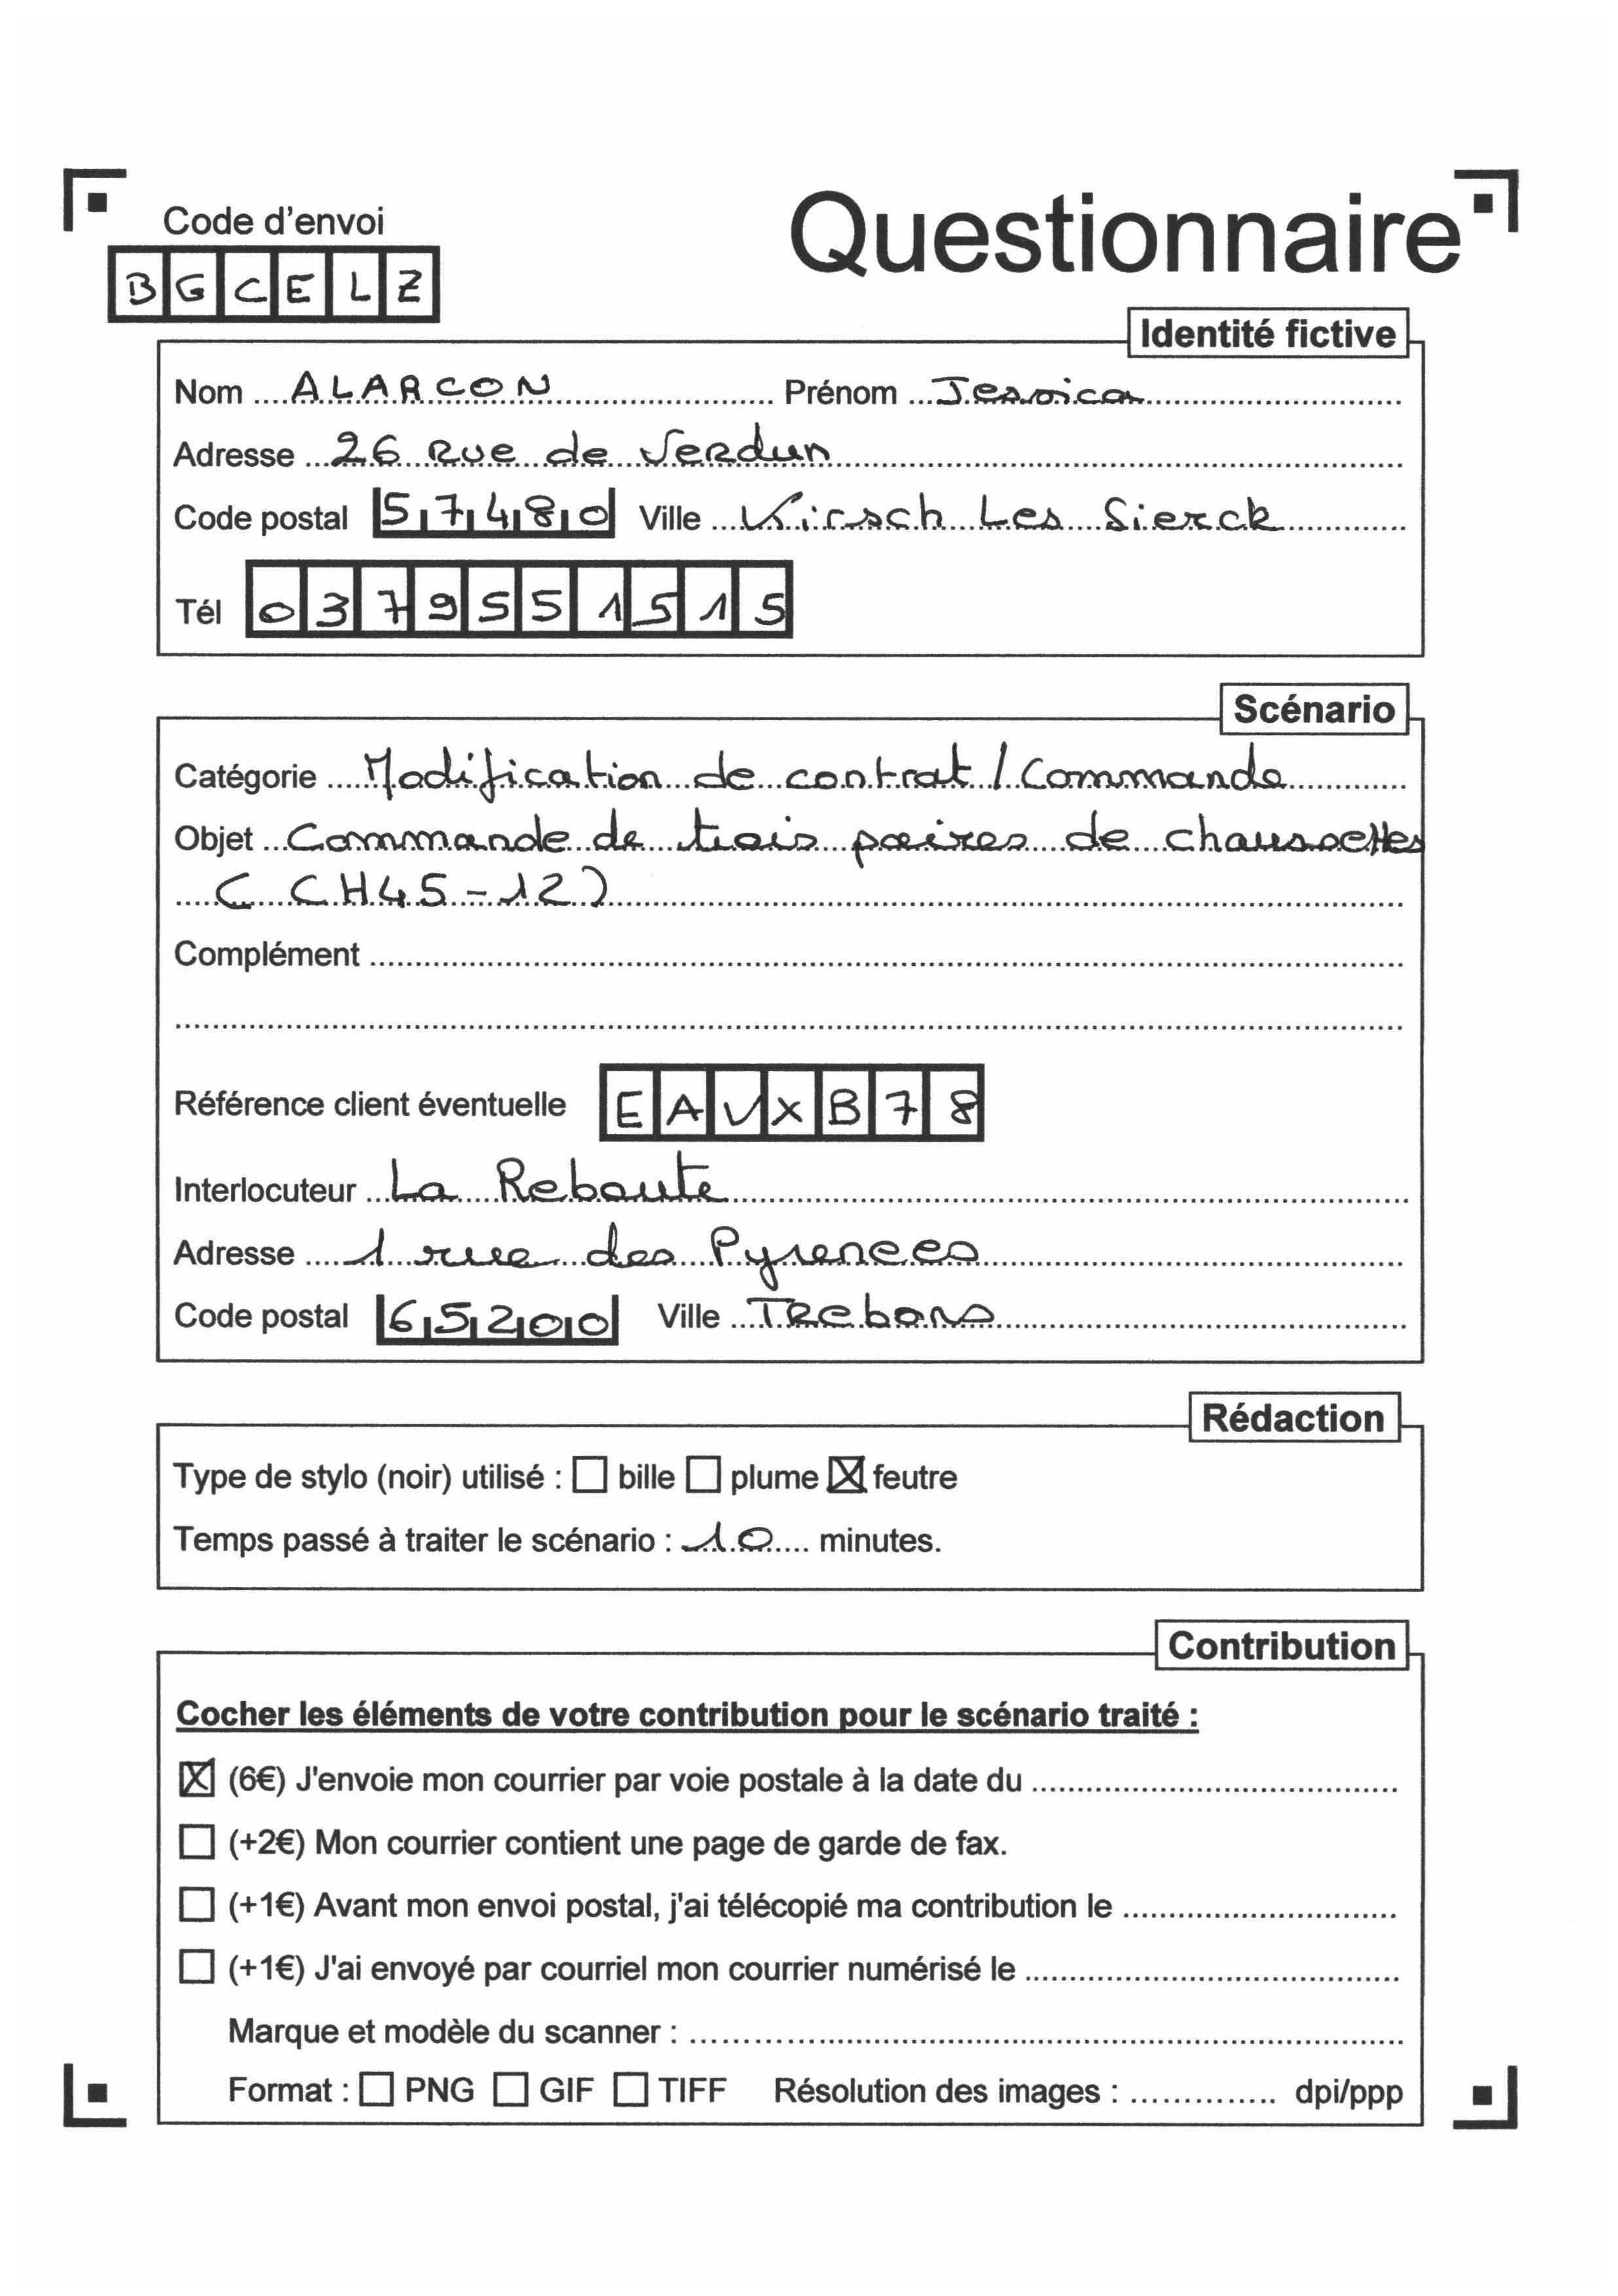 Code d'envoi
Questionnaire
BGCELZ
Identité fictive
Nom ALARCON Prénom Jessica
Adresse 26 Rue de Verdun
Code postal 57480 Ville Kirsch Les Sierck
Tél 0379551515
Scénario
Catégorie Modification de contrat / Commande
Objet Commande de trois paires de chaussettes
( CH45-12)
Complément
Référence client éventuelle EAVXB78
Interlocuteur La Reboute
Adresse 1 rue des Pyrenees
Code postal 65200 Ville Trebons
Rédaction
Type de stylo (noir) utilisé : ☐ bille ☐ plume ☒ feutre
Temps passé à traiter le scénario : 10 minutes.
Contribution
Cocher les éléments de votre contribution pour le scénario traité :
☒ (6€) J'envoie mon courrier par voie postale à la date du
☐ (+2€) Mon courrier contient une page de garde de fax.
☐ (+1€) Avant mon envoi postal, j'ai télécopié ma contribution le
☐ (+1€) J'ai envoyé par courriel mon courrier numérisé le
Marque et modèle du scanner :
Format : ☐ PNG ☐ GIF ☐ TIFF Résolution des images : dpi/ppp